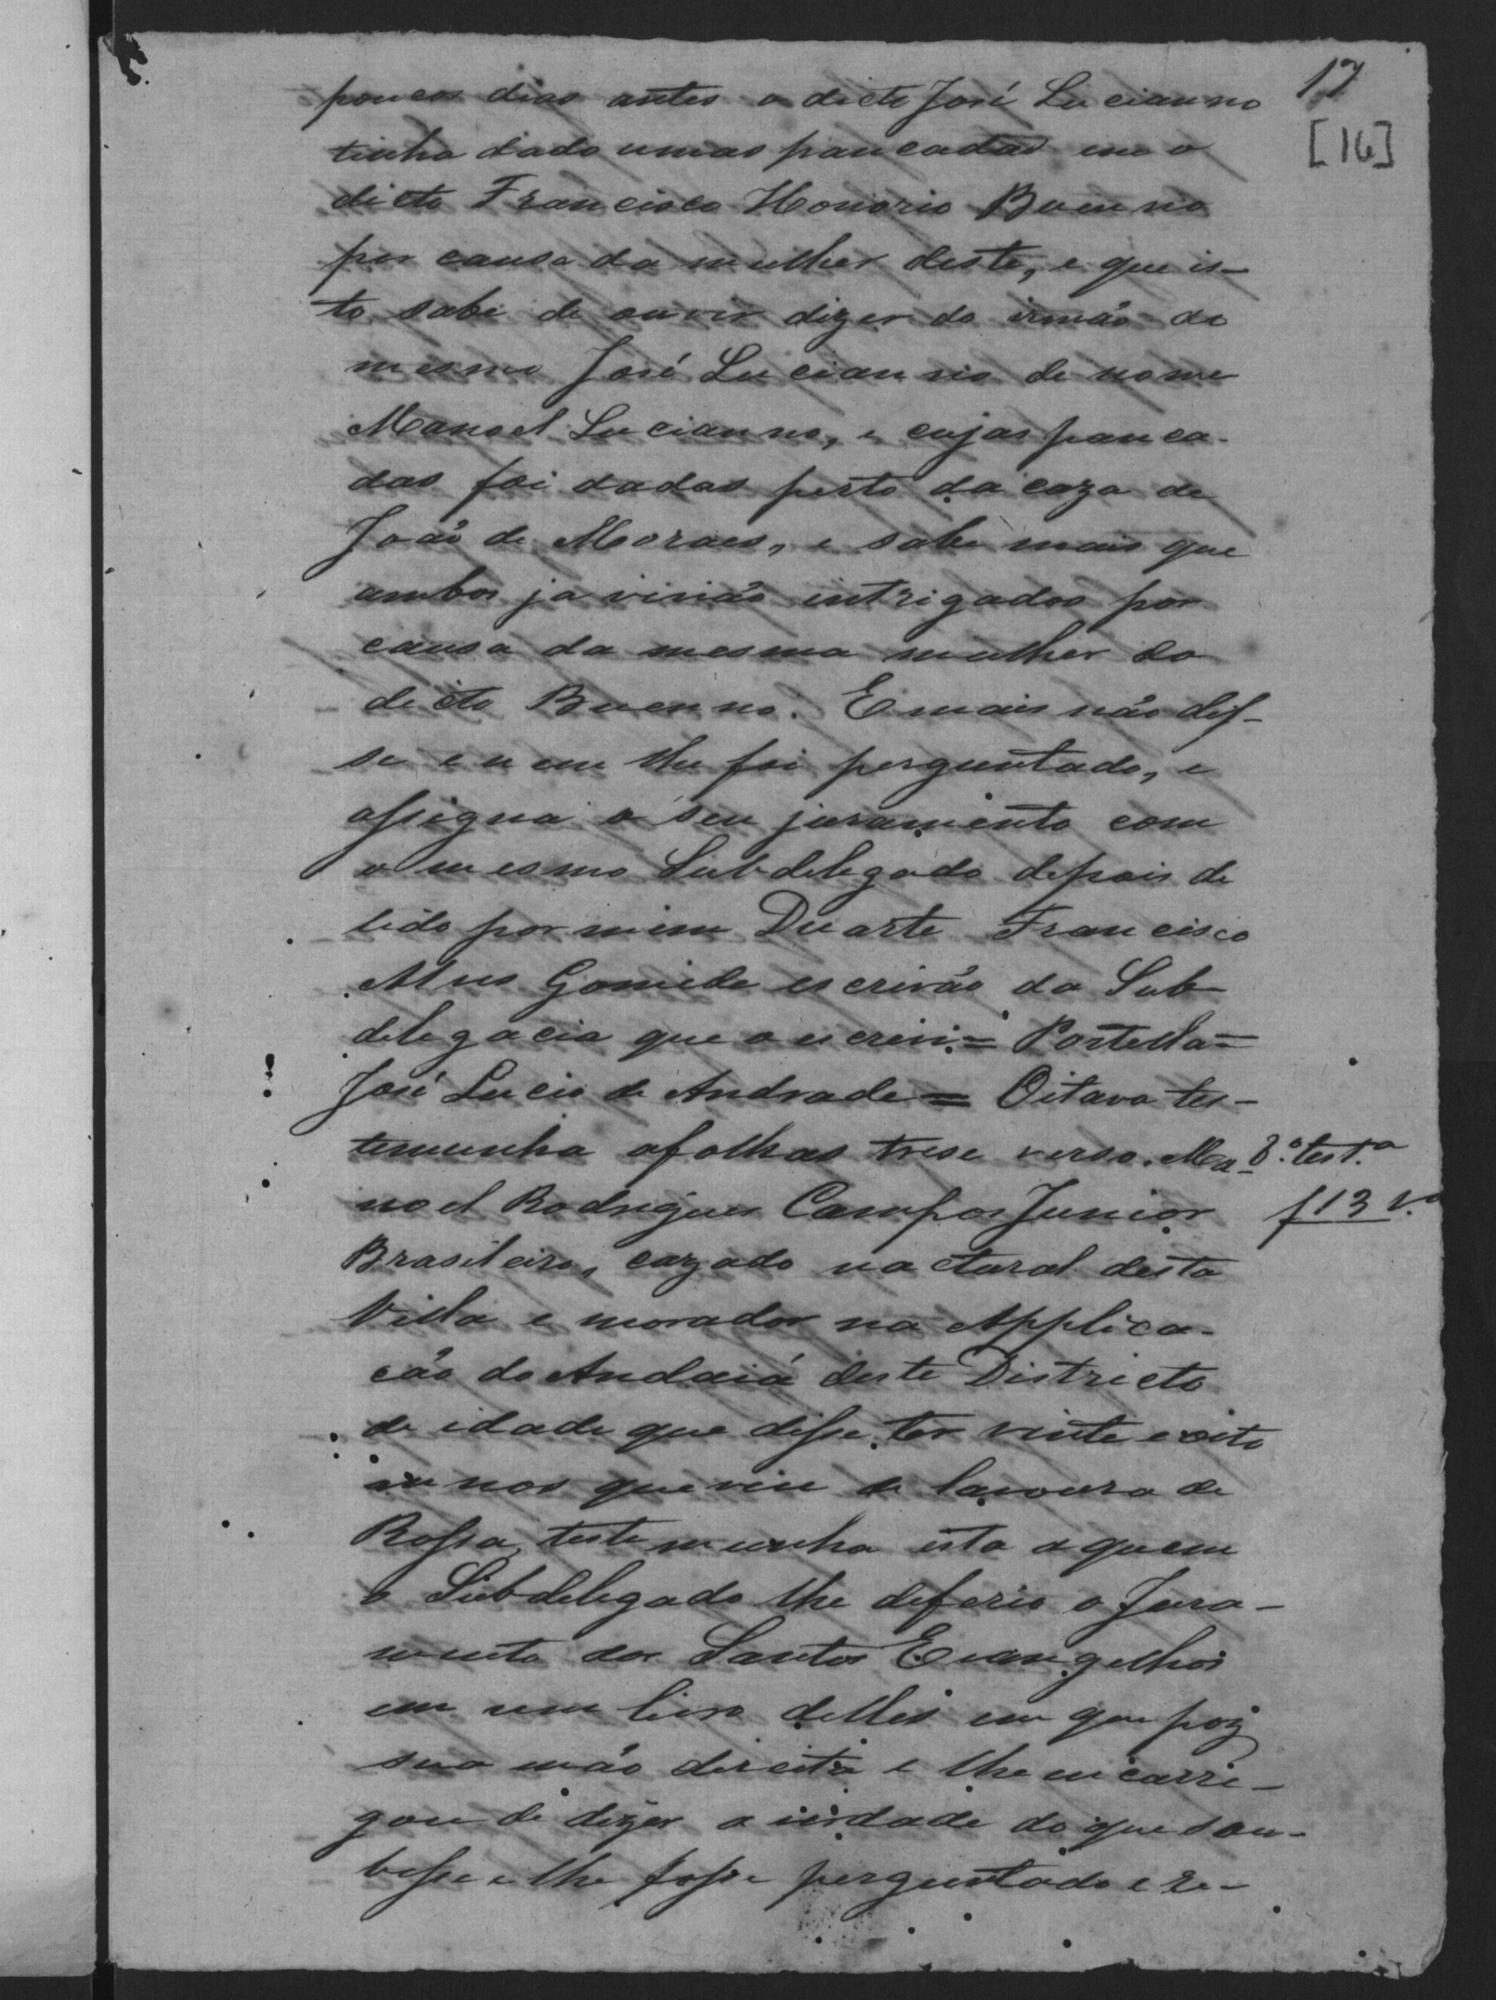 17
[16]
poucos dias antes o dicto José Lucianno
tinha dado umas pancadas em o
dicto Francisco Honorio Buenno
por causa da mulher deste, e que is-
to sabe de ouvir dizer do irmão do
mesmo José Lucianno de nome
Manoel Lucianno, e cujas panca-
das foi dadas perto da caza de
João de Moraes, e sabe mais que
ambos ja vivião intrigados por
causa da mesma mulher do
dicto Buenno. E mais não dis-
se e nem lhe foi perguntado, e
assigna o seu juramento com
o mesmo Subdelegado depois de
lido por mim Duarte Francisco
Alves Gomide escrivão da Sub-
delegacia que o escrevi = Portella =
José Lucio de Andrade = Oitava tes-
temunha afolhas trese verso. Ma-
8.ª test.ª
f 13 V.º
noel Rodrigues Campos Junior
Brasileiro, cazado nactural desta
Villa e morador na Applica-
cão do Andaiá deste Districto
de idade que disse ter vinte e oito
annos que vive de lavoura de
Rossa, testemunha esta a quem
o Subdelegado lhe deferio o Jura-
mento dos Santos Evangelhos
em um livro delles em que poz
sua mão direita e lhe encarre-
gou de dizer a verdade do que sou-
besse e lhe fosse perguntado e re-